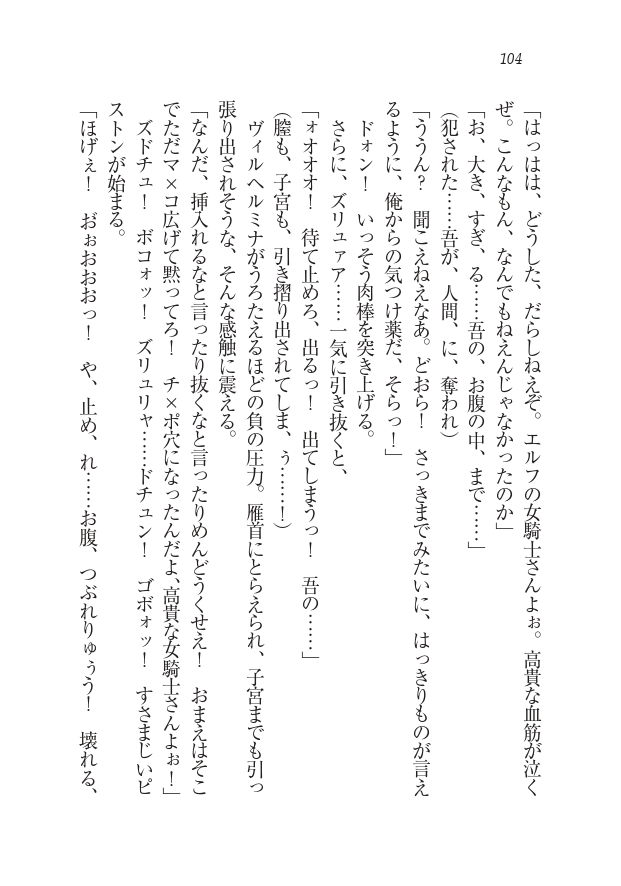 104
「はっはは、どうした、だらしねえぞ。エルフの女騎士さんよぉ。高貴な血筋が泣く
ぜ。こんなもん、なんでもねえんじゃなかったのか」
「お、大き、すぎ、る……吾の、お腹の中、まで……」
(犯された……吾が、人間、に、奪われ)
「ううん？　聞こえねえなあ。どおら！　さっきまでみたいに、はっきりものが言え
るように、俺からの気つけ薬だ、そらっ！」
　ドォン！　いっそう肉棒を突き上げる。
　さらに、ズリュァア……一気に引き抜くと、
「ォオオオ！　待て止めろ、出るっ！　出てしまうっ！　吾の……」
(膣も、子宮も、引き摺り出されてしま、ぅ……！)
　ヴィルヘルミナがうろたえるほどの負の圧力。雁首にとらえられ、子宮までも引っ
張り出されそうな、そんな感触に震える。
「なんだ、挿入れるなと言ったり抜くなと言ったりめんどうくせえ！　おまえはそこ
でただマ×コ広げて黙ってろ！　チ×ポ穴になったんだよ、高貴な女騎士さんよぉ！」
　ズドチュ！　ボコォッ！　ズリュリャ……ドチュン！　ゴボォッ！　すさまじいピ
ストンが始まる。
「ほげぇ！　お゛ぉおおおっ！　や、止め、れ……お腹、つぶれりゅぅう！　壊れる、